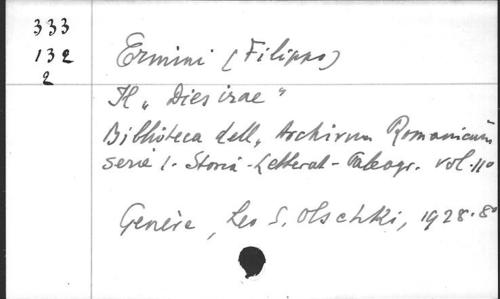 333
132
2
Ermini (Filippo)
Il „Dies irae"
Biblioteca dell„ Archivum Romanicum"
serie I. Storia - Letterat - Paleogr. vol. 11°
Genève, Leo S. Olschki, 1928. 8°